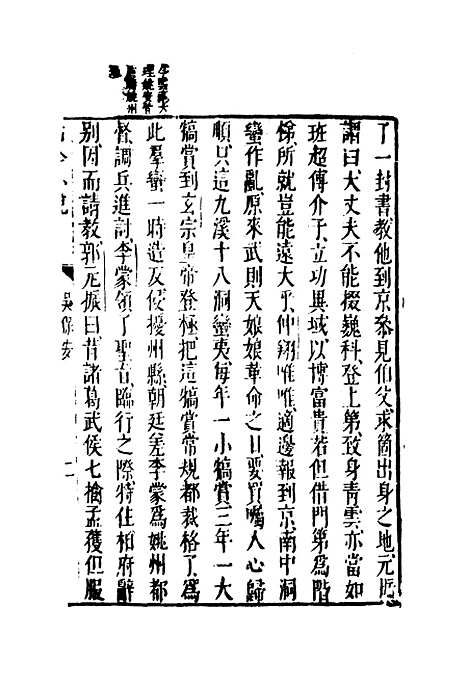 了一封書教他到京參見伯父求箇出身之地元振
謂曰大丈夫不能掇巍科登上第致身青雲亦當如
班超傅介子立功異域以博富貴若但借門第爲階
梯所就豈能遠大乎仲翔唯唯適邊報到京南中洞
蠻作亂原來武則天娘娘革命之日要買囑人心歸
順只這九溪十八洞蠻夷每年一小犒賞三年一大
犒賞到玄宗皇帝登極把這犒賞常規都裁格了爲
此羣蠻一時造反侵擾州縣朝廷差李蒙爲姚州都
督調兵進討李蒙領了聖旨臨行之際特往相府辭
別因而請教郭元振曰昔諸葛武侯七擒孟獲但服
吳保安
二